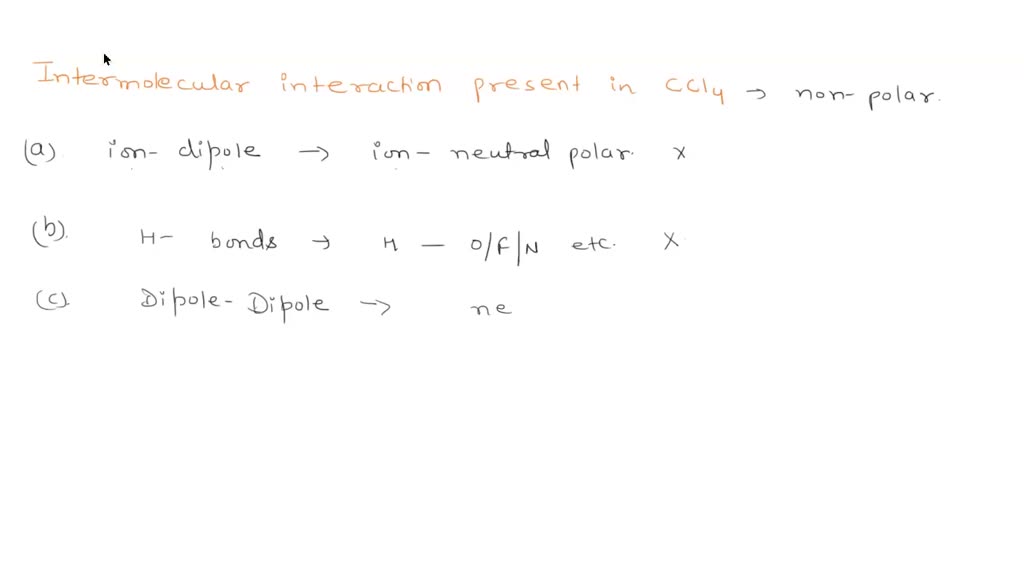 Intermolecular interaction present in CCl4 → non-polar.
(a) ion-dipole → ion-neutral polar. x
(b). H-bonds → H — O/F/N etc. X
(c). Dipole-Dipole → ne